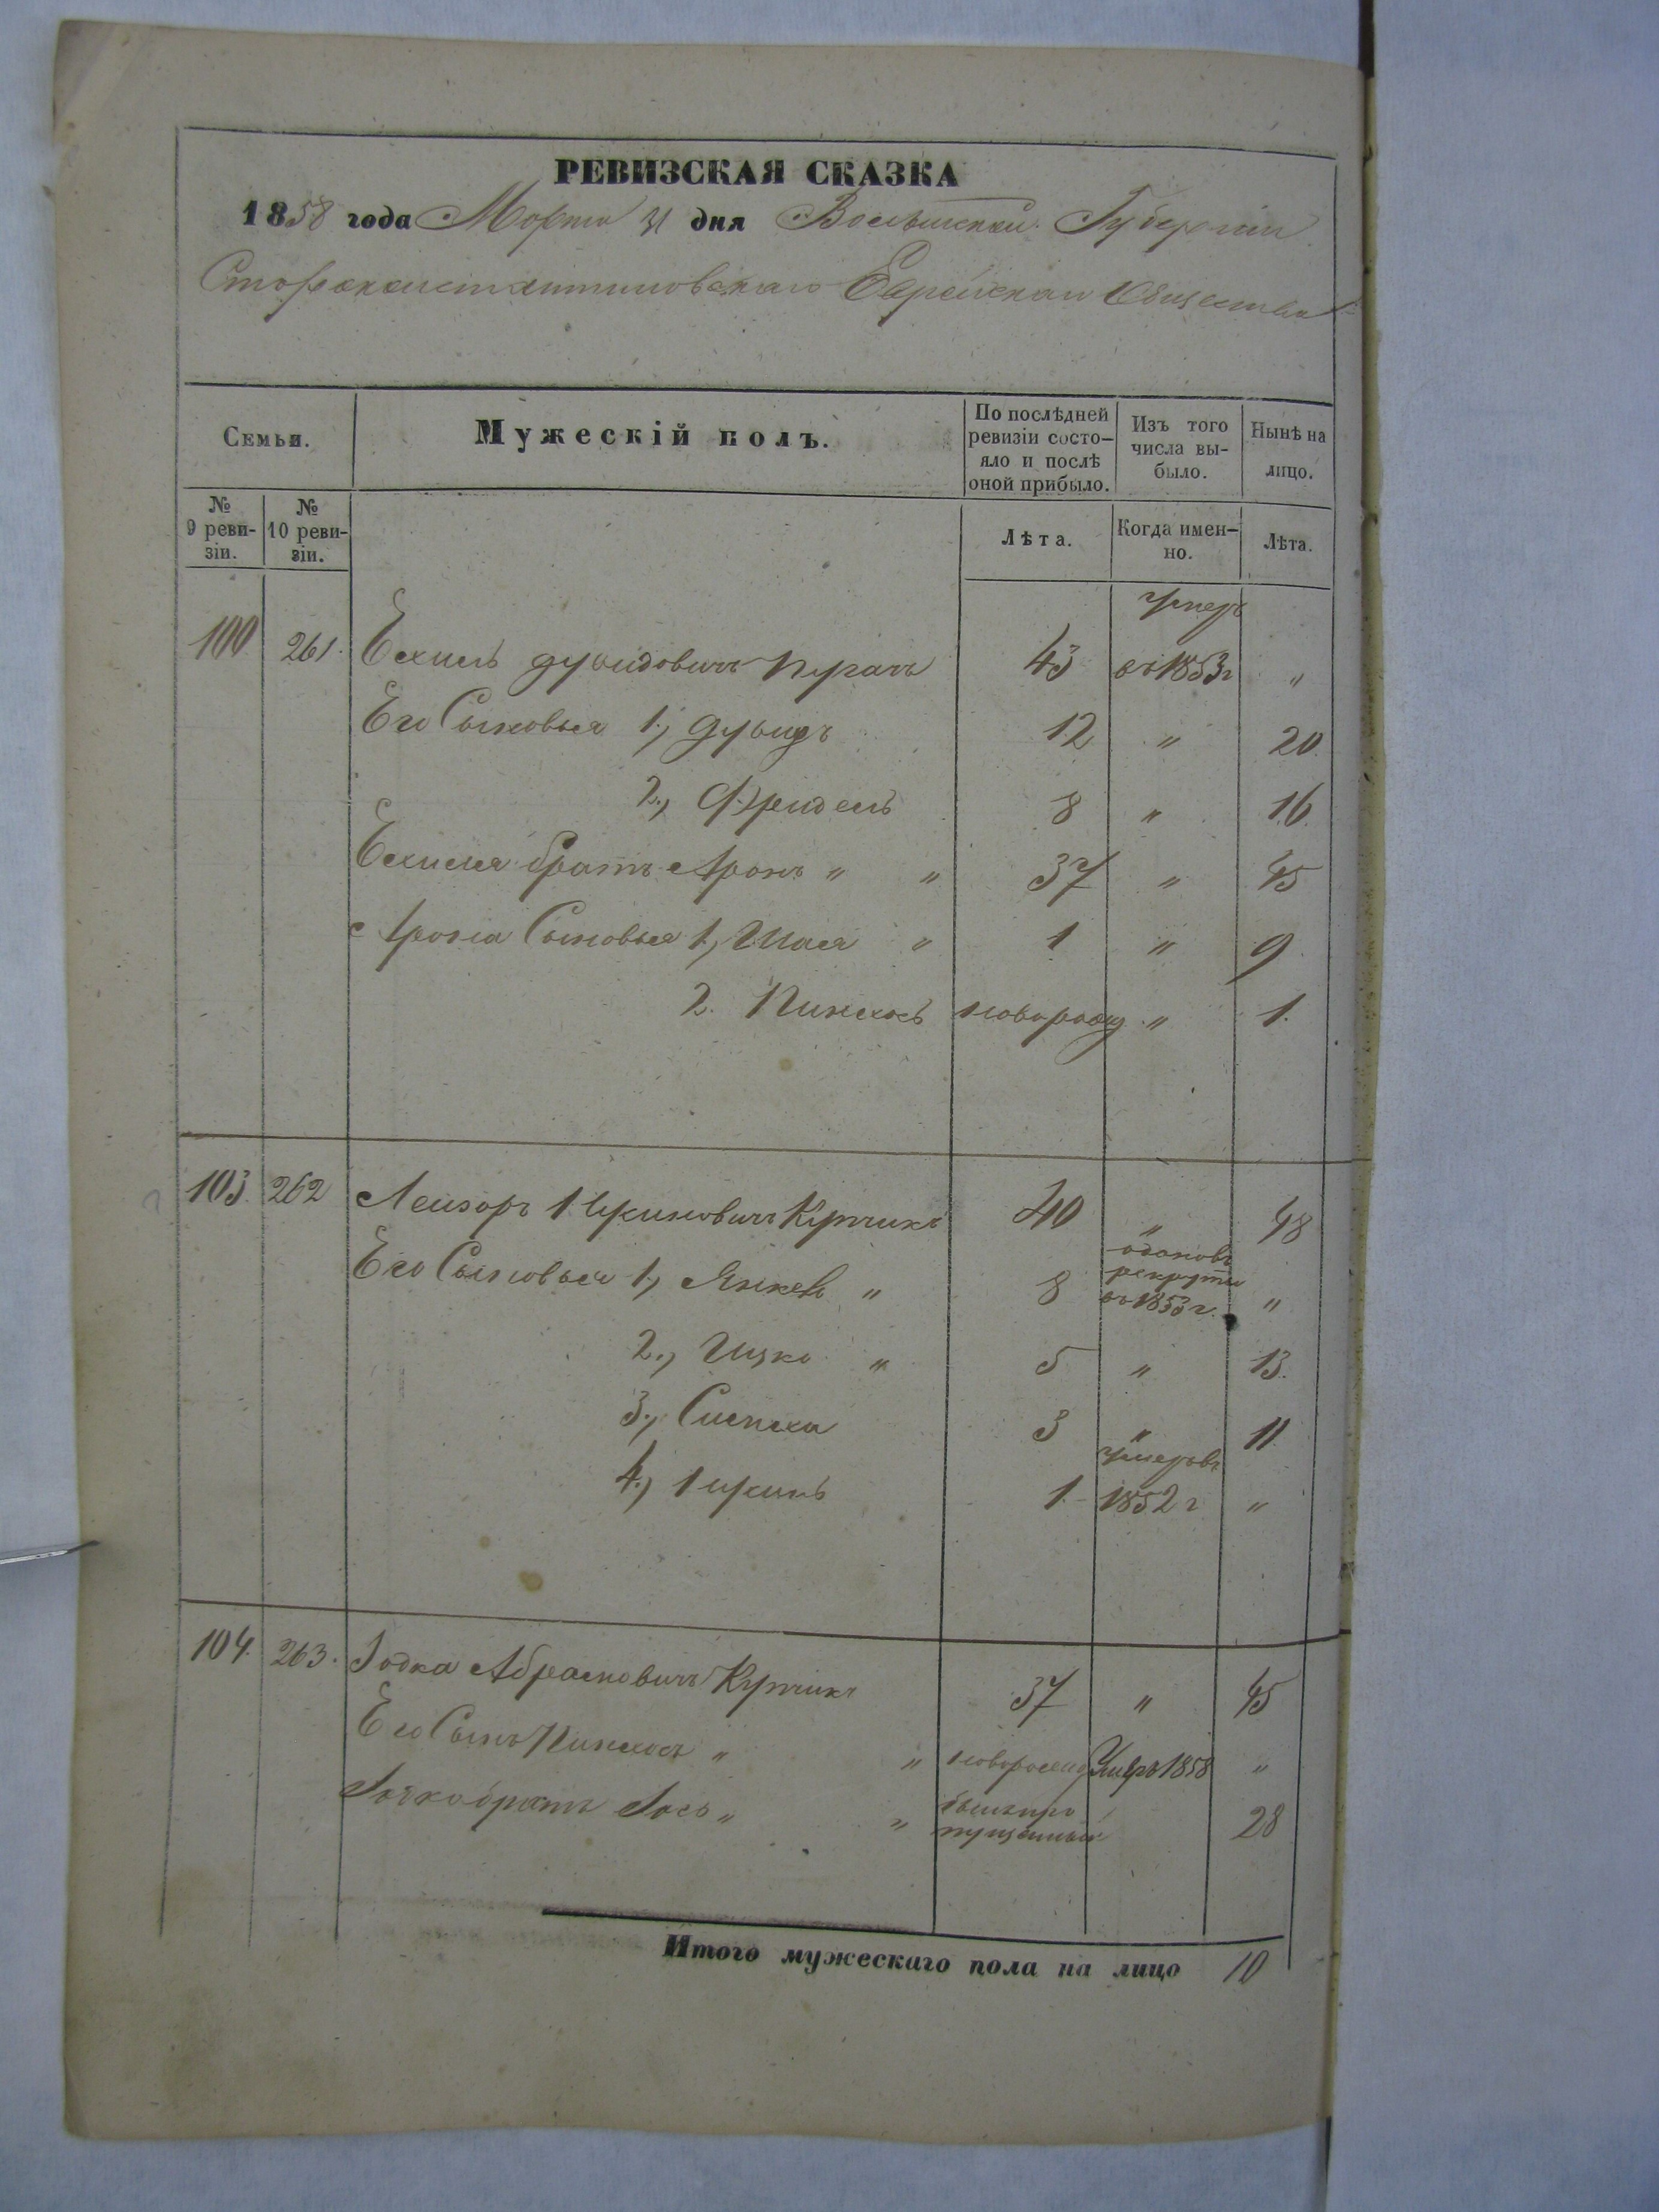 РЕВИЗСКАЯ СКАЗКА
1858 года Марта 31 дня Волынской Губернiи
Староконстантиновскаго Еврейскаго Общества
Семьи.
Мужескiй полъ.
По послѣдней ревизiи состо-яло и послѣ оной прибыло.
Изъ того числа вы-было.
Нынѣ на лицо.
№ 9 реви-зiи.
№ 10 реви-зiи.
Лѣта.
Когда имен-но.
Лѣта.
умеръ
100 261. Ехиль Дувидовичъ 43 въ 1853 г "
Его Сыновья 1, Дувидъ 12 " 20.
2., Фридель 8 " 16.
Ехиля братъ Аронъ " " 37 " 45
Арона Сыновья 1, Шая " 1 " 9
2. Пинхасъ новорожд " 1.
103. 262 Лейзоръ Купчикъ 40 " 48
отданъ въ рекруты
Его Сыновья 1, Янкель " 8 въ 1853 г. "
2., Ицко " 5 " 13.
3., Симха 3 " 11
умеръ въ
4., 1. 1852 г "
104. 263. Iодка Абрамовичъ Купчикъ 37 " 45
Его Сынъ Пинхасъ " " новорожд Умеръ 1858 "
братъ Iось " " былъ про-пущенный 28
Итого мужескаго пола на лицо 10